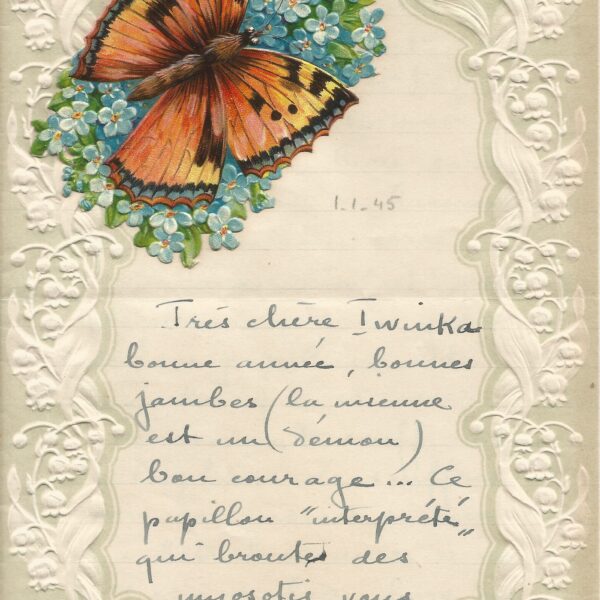 1.1.45
Très chère Iwinka
bonne année, bonnes
jambes (la mienne
est un démon)
bon courage... Ce
papillon "interprété"
qui broute des
myosotis vous